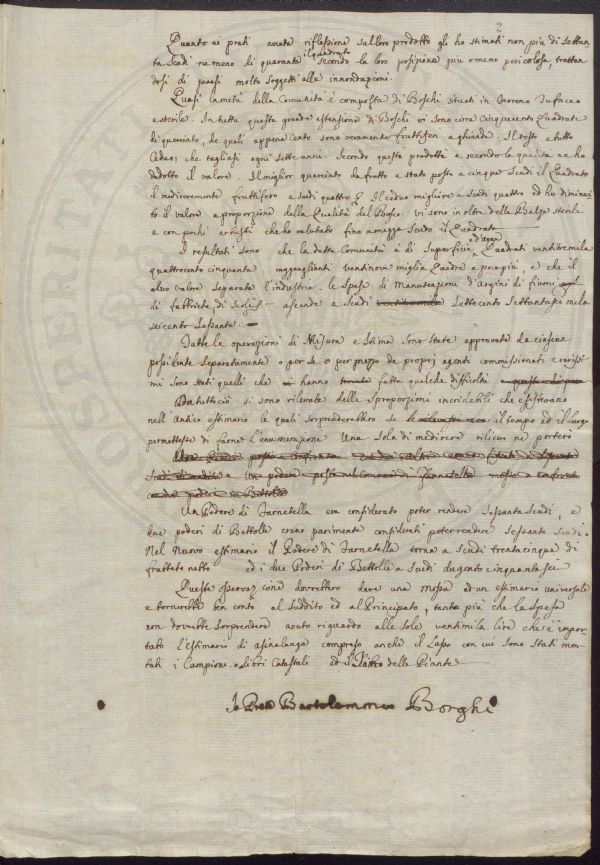 2
Quanto ai prati avuta riflessione sul loro prodotto gli ho stimati non più di settan
ta scudi ne meno di quaranta il quadrato secondo la loro posizione più o meno pericolosa, trattan
dosi di paesi molto soggetti alle innondazioni.
Quasi la metà della Comunità è composta di Boschi situati in terreno tufaceo
e sterile. In tutta questa grande estensione di Boschi vi sono circa Cinquecento Quadrate
di querciato, de quali appena Cento sono veramente fruttiferi a ghianda. Il resto è tutto
Ceduo, che tagliasi ogni sette anni. Secondo questo prodotto e secondo la qualità ne ho
dedotto il valore. Il miglior querciato da frutto è stato posto a cinque Scudi il Quadrato
il mediocremente fruttifero a scudi quattro. Il ceduo migliore a scudi quattro ed ho diminui
to il valore a proporzione della Qualità del Bosco. vi sono in oltre delle Balze sterili
e con pochi arbusti che ho valutato fino a mezzo scudo il Quadrato
I resultati sono che la detta Comunità è di Superficie Quadrati ventitremila
quattrocento cinquanta ragguaglianti ventinove miglia Quadre e pre più, e che il
suo valore separata l'industria, le spese di Manutenzione d'argini di fiumi
di fabbriche, di ascende a Scudi Settecento Settantasei mila
seicento sessanta.
Tutte le operazioni di Misura e Stima sono state approvate da ciascun
possidente separatamente o per se o per mezzo de proprj agenti commissionati e rarissi
mi sono stati quelli che hanno fatta qualche difficoltà
Da tutto ciò si sono rilevate delle sproporzioni incredibili che esistevano
nell'Antico estimario le quali sorprenderebbero se il tempo ed il luogo
permettesse di farne l'enumerazione. Una sola di mediocre rilievo ne porterò
Un Podere di Farnetella era considerato poter rendere sessanta Scudi, e
due poderi di Bettolle erano parimente considerati poter rendere sessanta scudi.
Nel Nuovo estimario il Podere di Farnetella torna a Scudi trentacinque di
fruttato netto ed i due Poderi di Bettolle a Scudi dugento cinquantasei
Queste osservazioni dovrebbero dare una mossa ad un estimario universale
e tornerebbe ben conto al Suddito ed al Principato, tanto più che la Spesa
non dovrebbe sorprendere avuto riguardo alle sole ventimila lire che è impor
tato l'estimario di asinalunga compreso anche il Lusso con cui sono stati mon
tati i Campioni, o Libri Catastali ed il delle Piante
Io Prete Bartolommeo Borghi